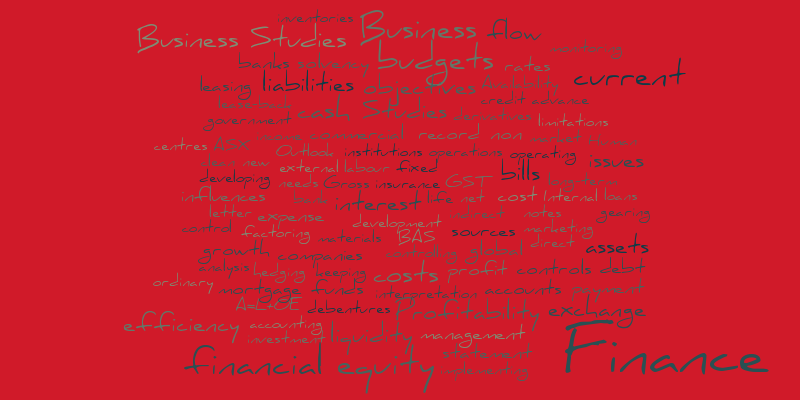 inventories
Business Studies Business flow
monitoring
banks solvency budgets rates
leasing liabilities objectives Availability current
credit advance
government cash Studies limitations
commercial record non
centres ASX Outlook institutions operations operating
new external labour fixed bills issues
developing needs Gross insurance GST long-term
influences interest life net cost Internal loans
letter expense indirect notes gearing
development
control factoring materials BAS sources marketing
direct
growth companies global assets
analysis hedging keeping costs profit controls debt
ordinary mortgage funds interpretation accounts payment
A=L+OE debentures Profitability exchange
efficiency accounting
investment liquidity management
financial equity statement Finance